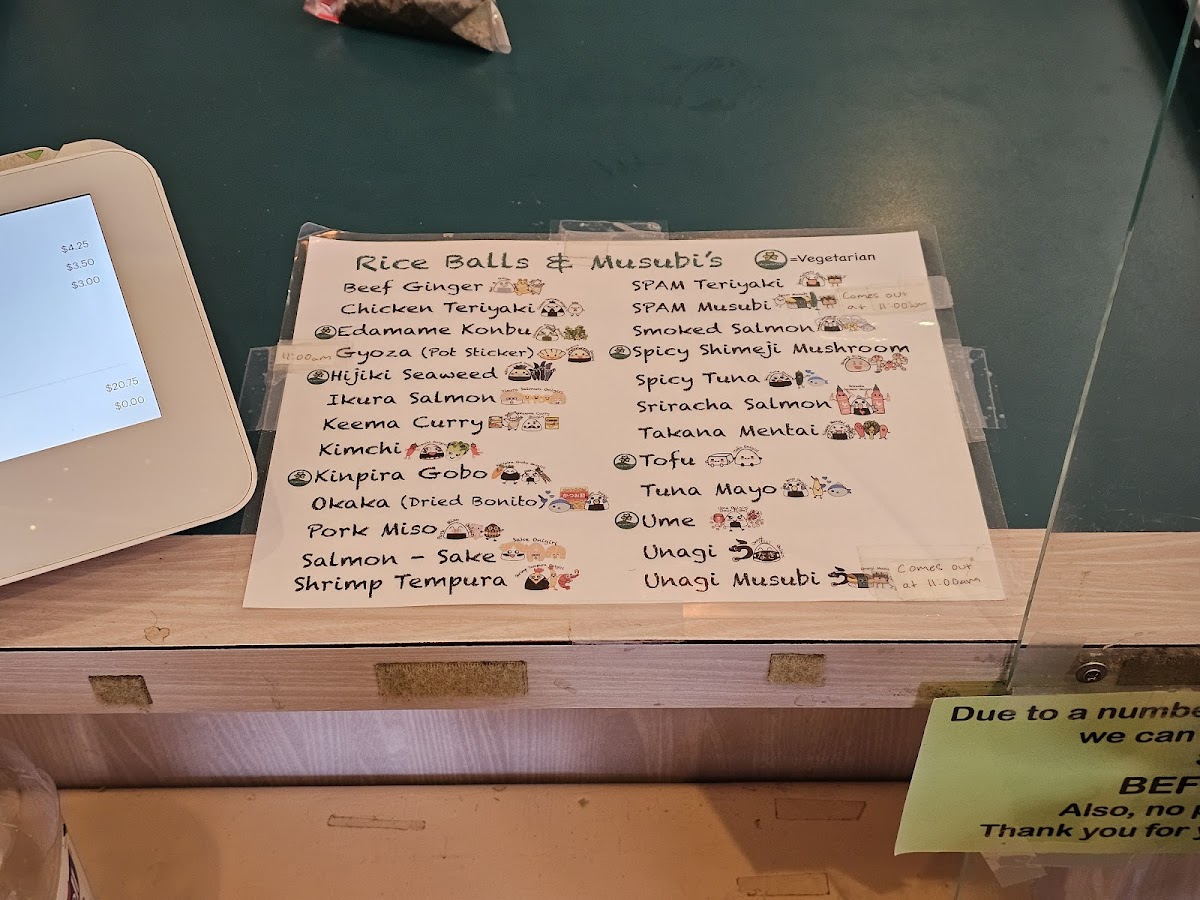 $4.25
$3.50
$3.00
$20.75
$0.00
Rice Balls & Musubi's
=Vegetarian
Beef Ginger
Chicken Teriyaki
Edamame Konbu
11:00am
Gyoza (Pot Sticker)
Hijiki Seaweed
Ikura Salmon
Keema Curry
Kimchi
Kinpira Gobo
Okaka (Dried Bonito)
Pork Miso
Salmon - Sake
Shrimp Tempura
SPAM Teriyaki
SPAM Musubi
Comes out
at 11:00am
Smoked Salmon
Spicy Shimeji Mushroom
Spicy Tuna
Sriracha Salmon
Takana Mentai
Tofu
Tuna Mayo
Ume
Unagi
Unagi Musubi
Comes out
at 11:00am
Due to a numbe
we can
BEF
Also, no p
Thank you for y